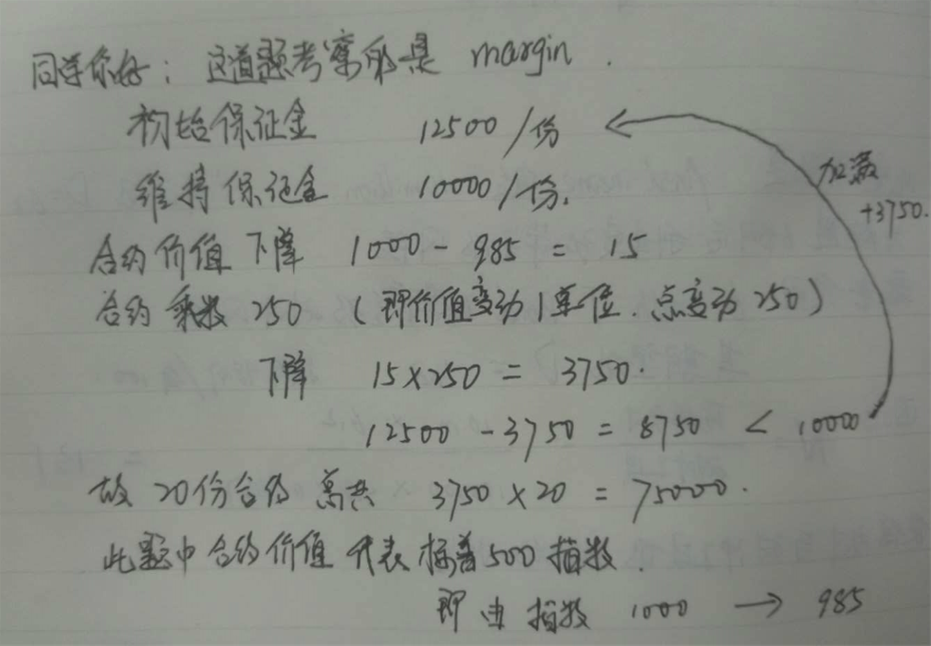 同学你好：这道题考察的是 margin .
初始保证金 12500 /份
维持保证金 10000 /份.
加满
+3750.
合约价值 下降 1000 - 985 = 15
合约 乘数 250 (即价值变动 1 单位. 点变动 250)
下降 15×250 = 3750.
12500 - 3750 = 8750 < 10000
故 20份合约 总共 3750 × 20 = 75000.
此题中合约价值 代表 标普500 指数.
即由 指数 1000 → 985